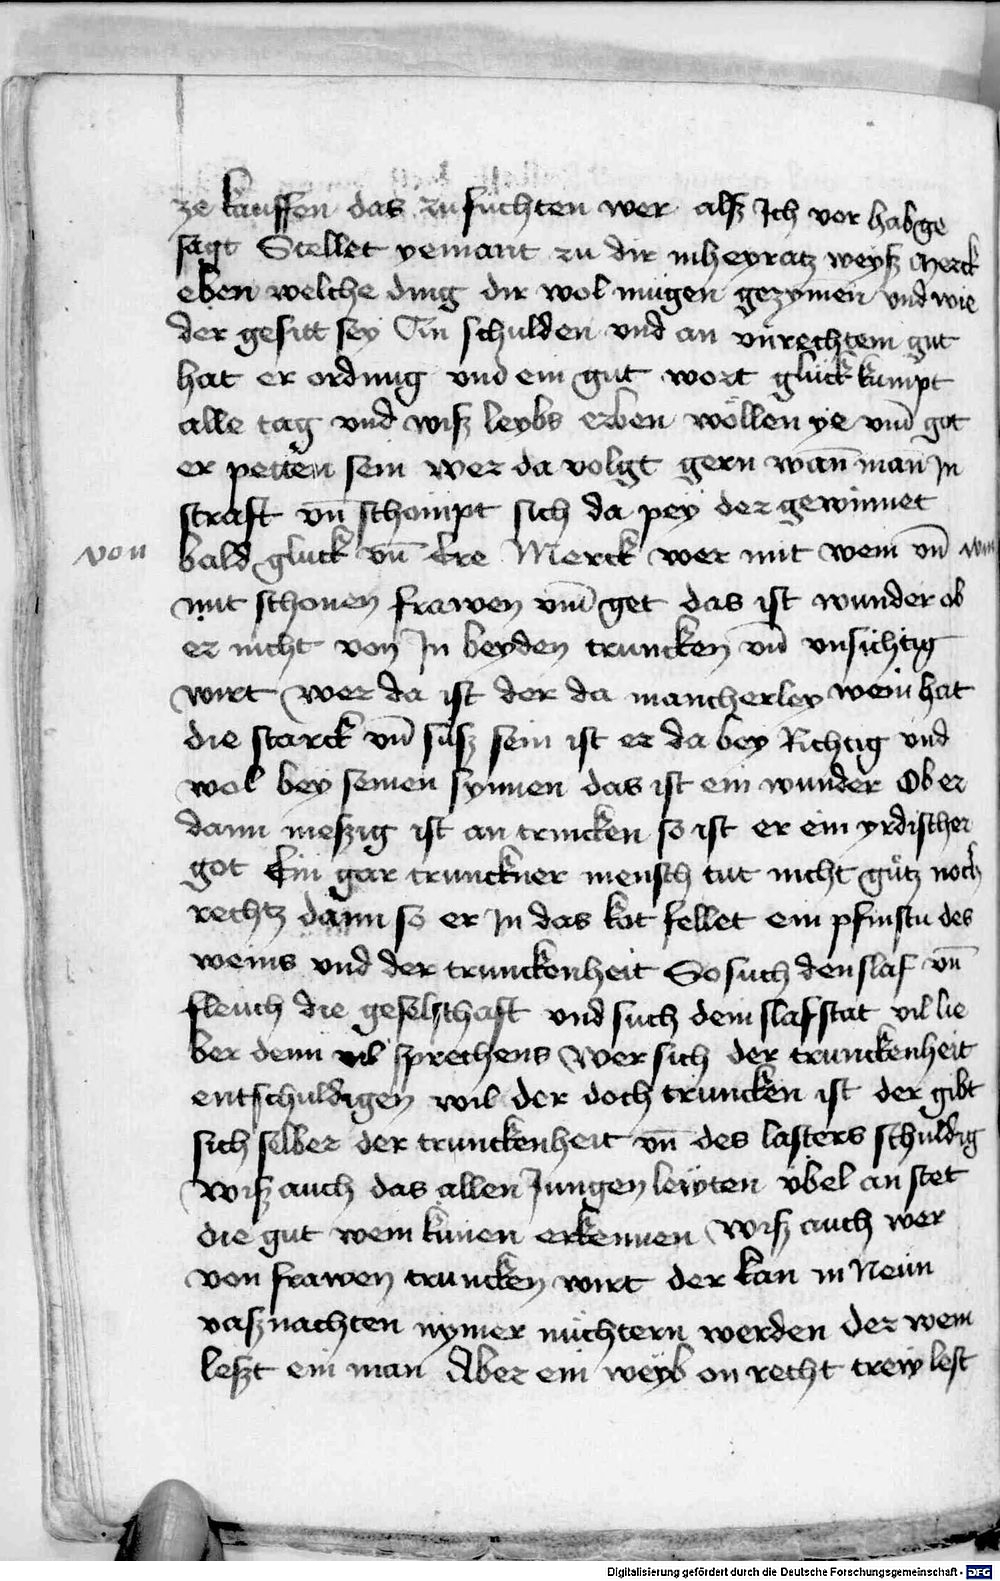 ze kauffen das zufuchten wer alsz Ich vor habge
sagt Stellet yemant zu dir inheyratz weysz Merck
eben welche ding dir wol mugen gezymen und wie
der gesitt sey An schulden und an unrechtem gut
hat er ordnug und ein gut wort gluck kumpt
alle tag und wisz leybs erben wöllen ye vm̄ got
er petten sein wer da volgt gern wan̄ man In
straft vn̄ schompt sich da pey der gewinnet
von
bald gluck vn̄ Ere Merck wer mit wein vn̄
mit schonen frawen vm̄ get das ist wunder ob
er nicht von In beyden truncken vn̄ vnsichtig
wirt wer da ist der da mancherley wein hat
die starck vn̄ susz sein ist er da bey Richtig und
wol bey seinen synnen das ist ein wunder Ob er
dann meszig ist an trincken so ist er ein yrdischer
got Ein gar trunckner mensch tut nicht gutz noch
rechtz dann so er In das kot fellet ein pfinstu des
weins und der trunckenheit So such den slaf vn̄
fleuch die geselschaft und such dem slaf stat vil lie
ber denn vil sprechens Wer sich der trunckenheit
entschuldigen wil der doch truncken ist der gibt
sich selber der trunckenheit vn̄ des lasters schuldig
Wisz auch das allen Jungen leÿten ubel an stet
die gut wein kunen erkennen Wisz auch wer
von frawen truncken wirt der kan in Neun
vasznachten nymer nuchtern werden Der wein
leszt ein man Aber ein weyb on recht trew lest